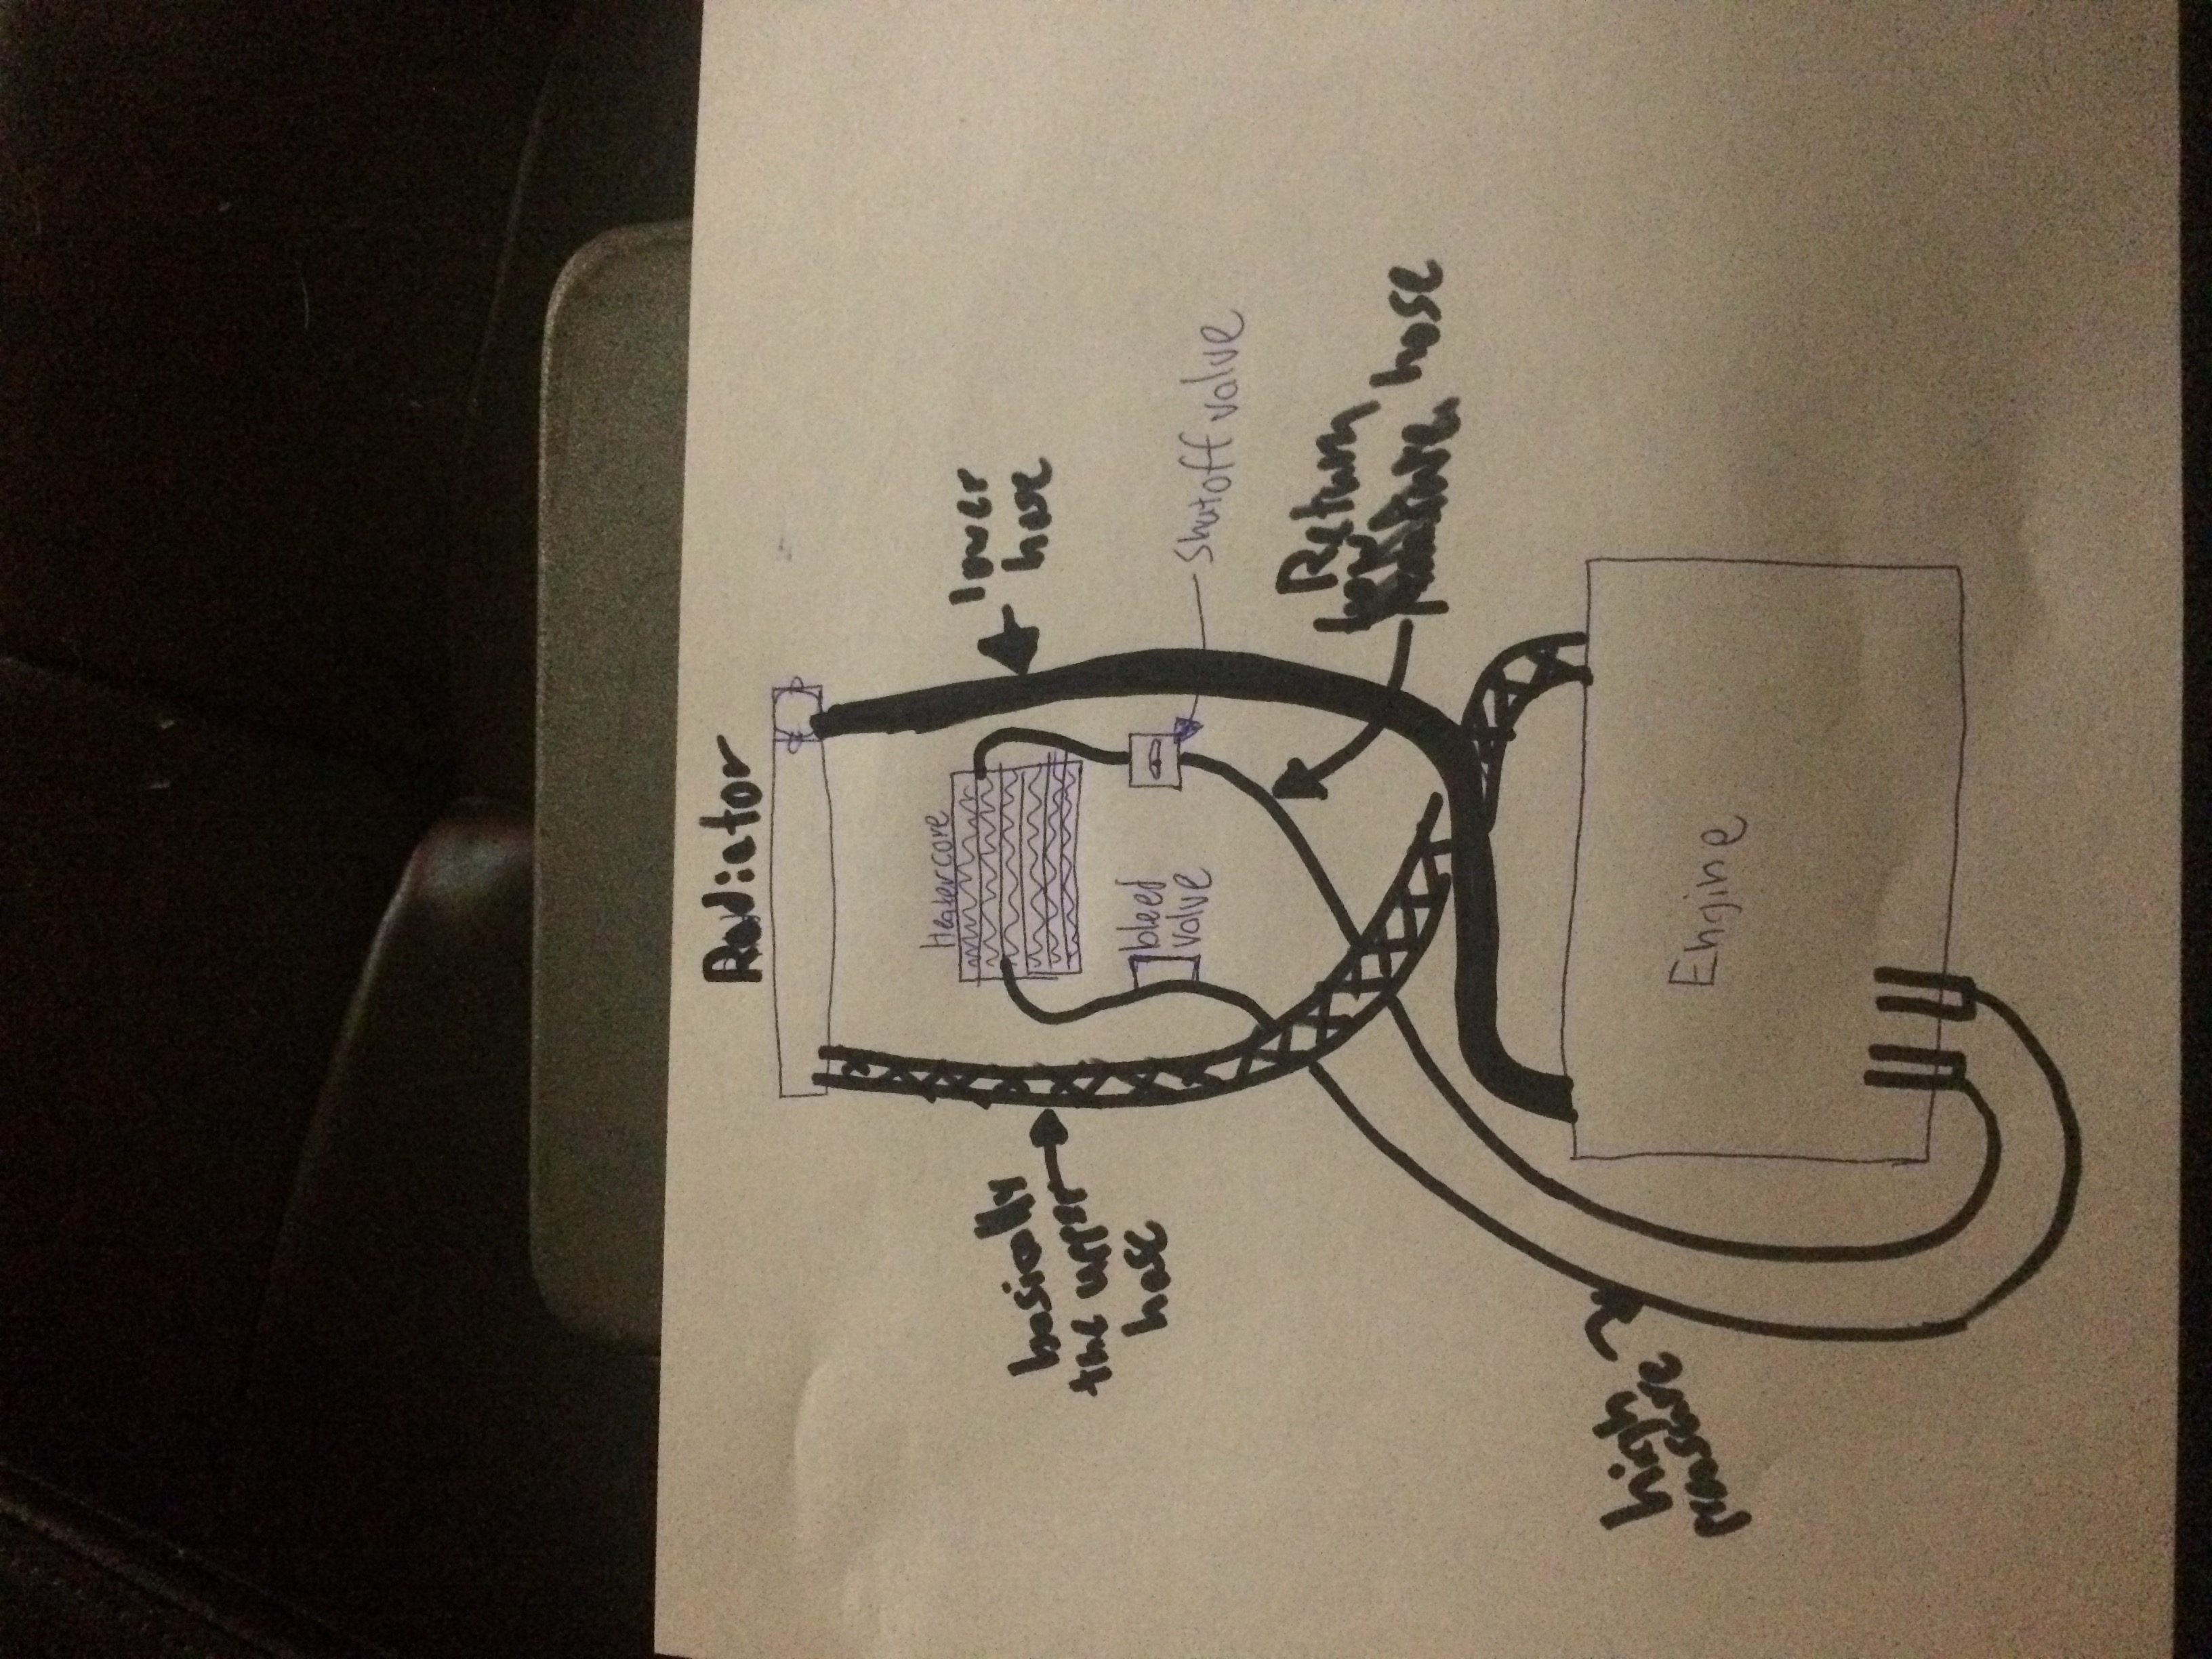 Radiator
Heatercore
lower
hose
basically
the upper
hose
bleed
valve
shutoff valve
Return
hose
high
pressure
Engine